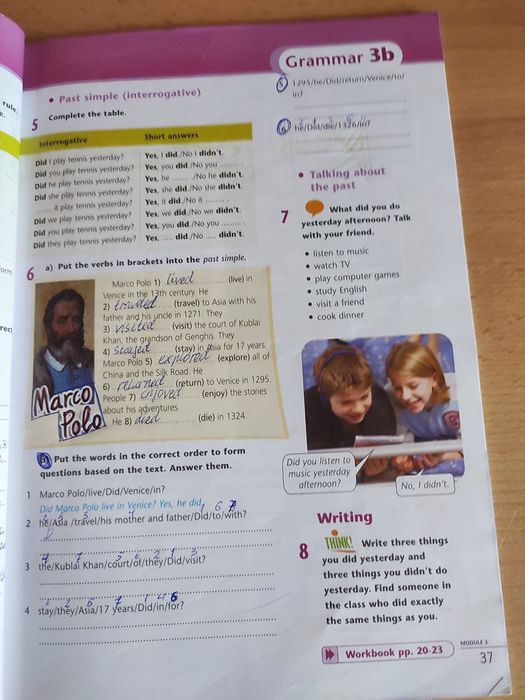 Grammar 3b
• Past simple (interrogative)
5 Complete the table.
Interrogative Short answers
Did I play tennis yesterday? Yes, I did./No I didn't.
Did you play tennis yesterday? Yes, you did./No you ..........
Did he play tennis yesterday? Yes, he .......... ./No he didn't.
Did she play tennis yesterday? Yes, she did./No she didn't.
.......... it play tennis yesterday? Yes, it did./No it ..........
Did we play tennis yesterday? Yes, we did./No we didn't.
Did you play tennis yesterday? Yes, you did./No you ..........
Did they play tennis yesterday? Yes, ..... did./No ..... didn't.
6 a) Put the verbs in brackets into the past simple.
Marco Polo 1) lived (live) in
Venice in the 13th century. He
2) traveled (travel) to Asia with his
father and his uncle in 1271. They
3) visited (visit) the court of Kublai
Khan, the grandson of Genghis. They
4) stayed (stay) in Asia for 17 years.
Marco Polo 5) explored (explore) all of
China and the Silk Road. He
6) returned (return) to Venice in 1295.
People 7) enjoyed (enjoy) the stories
about his adventures.
He 8) died (die) in 1324.
Marco
Polo
Put the words in the correct order to form
questions based on the text. Answer them.
1 Marco Polo/live/Did/Venice/in?
Did Marco Polo live in Venice? Yes, he did.
2 he/Asia /travel/his mother and father/Did/to/with?
3 the/Kublai Khan/court/of/they/Did/visit?
4 stay/they/Asia/17 years/Did/in/for?
5 1295/he/Did/return/Venice/to/
in?
6 he/Did/die/1326/in?
• Talking about
the past
7 What did you do
yesterday afternoon? Talk
with your friend.
• listen to music
• watch TV
• play computer games
• study English
• visit a friend
• cook dinner
Did you listen to
music yesterday
afternoon?
No, I didn't.
Writing
8 THINK! Write three things
you did yesterday and
three things you didn't do
yesterday. Find someone in
the class who did exactly
the same things as you.
Workbook pp. 20-23
MODULE 3
37